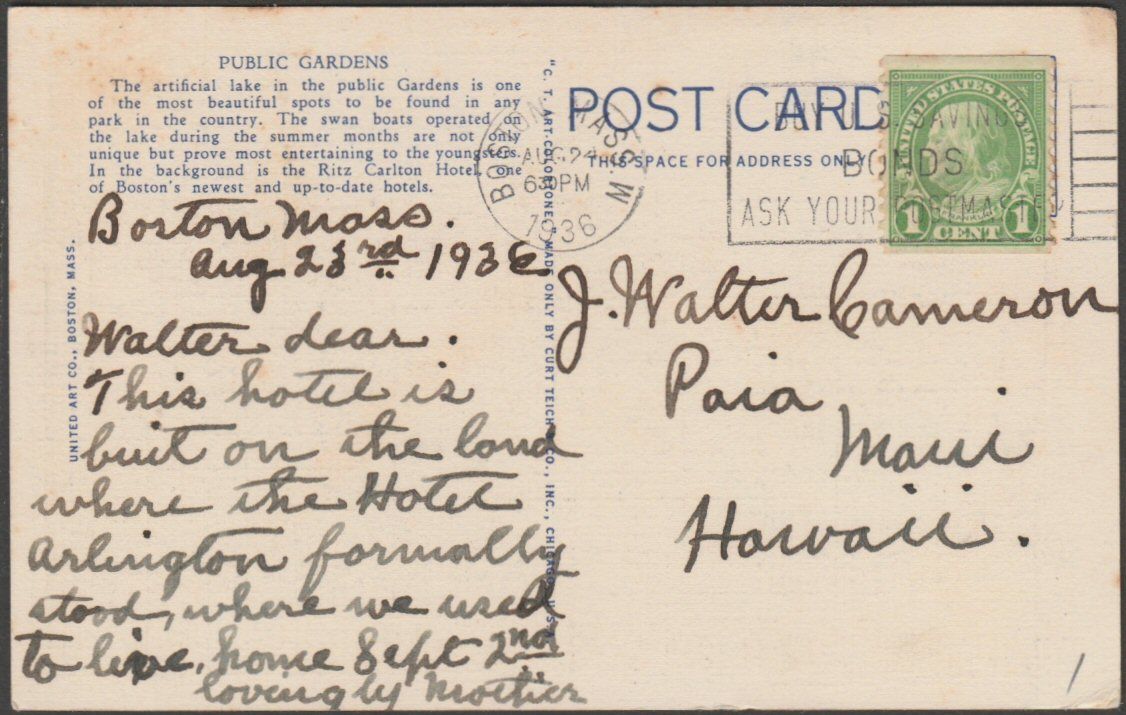 PUBLIC GARDENS
The artificial lake in the public Gardens is one
of the most beautiful spots to be found in any
park in the country. The swan boats operated on
the lake during the summer months are not only
unique but prove most entertaining to the youngsters.
In the background is the Ritz Carlton Hotel, one
of Boston's newest and up-to-date hotels.
Boston Mass.
Aug 23rd 1936
Walter dear.
This hotel is
buit on the land
where the Hotel
Arlington formally
stood, where we used
to live. home Sept 2nd
lovingly Mother
UNITED ART CO., BOSTON, MASS.
"C. T. ART-COLORTONE" MADE ONLY BY CURT TEICH & CO., INC., CHICAGO, U.S.A.
POST CARD
THIS SPACE FOR ADDRESS ONLY
BOSTON MASS. W
AUG 24
630PM
1936
BUY U.S. SAVINGS
BONDS
ASK YOUR POSTMASTER
UNITED STATES POSTAGE
FRANKLIN
1 CENT 1
J. Walter Cameron
Paia
Maui
Hawaii.
1